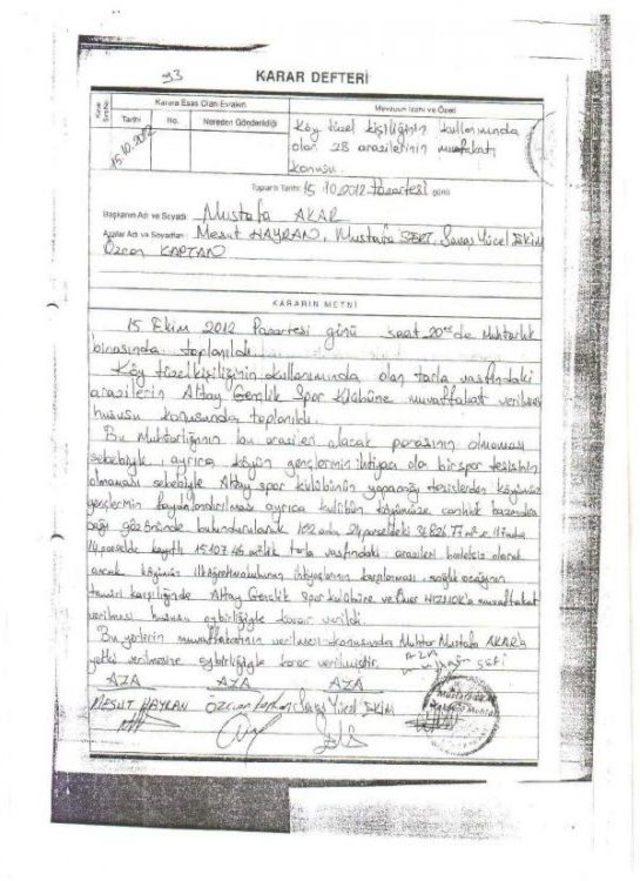 93
KARAR DEFTERİ
Karar Sıra No.
Karara Esas Olan Evrakın
Mevzuun İzahı ve Özeti
Tarihi No. Nereden Gönderildiği
15.10.2012
Köy tüzel kişiliğinin kullanımında
olan 2B arazilerinin muvafakatı
konusu.
Toplantı Tarihi 15.10.2012 Pazartesi günü
Başkanın Adı ve Soyadı Mustafa AKAR
Azalar Adı ve Soyadları Mesut HAYRAN, Mustafa SERT, Savaş Yücel EKİM
Özcan KAPTAN
KARARIN METNİ
15 Ekim 2012 Pazartesi günü saat 20 de Muhtarlık
binasında toplanıldı.
Köy tüzel kişiliğinin kullanımında olan tarla vasfındaki
arazilerin Altay Gençlik Spor Kulübüne muvaffakat verilmesi
hususu konusunda toplanıldı.
Bu Muhtarlığının bu arazileri alacak parasının olmaması
sebebiyle ayrıca köyün gençlerinin ihtiyacı ola bir spor tesisinin
olmaması sebebiyle Altay spor kulübünün yapacağı tesislerden köyümüz
gençlerinin faydalandırılması ayrıca kulübün köyümüze canlılık kazandıra
cağı göz önünde bulundurularak 102 ada 24 parseldeki
14 parselde kayıtlı 15.107.46 m2lik tarla vasfındaki arazileri bedelsiz olarak
ancak köyümüz ilköğretim okulunun ihtiyaçlarının karşılanması sağlık ocağının
tamiri karşılığında Altay Gençlik Spor kulübüne ve muvaffakat
verilmesi hususu oybirliğiyle karar verildi.
Bu yerlerin muvaffakatının verilmesi konusunda Muhtar Mustafa AKAR'a
yetki verilmesine oybirliğiyle karar verilmiştir.
AZA
AZA AZA AZA
MESUT HAYRAN Özcan Kaptan Savaş Yücel EKİM